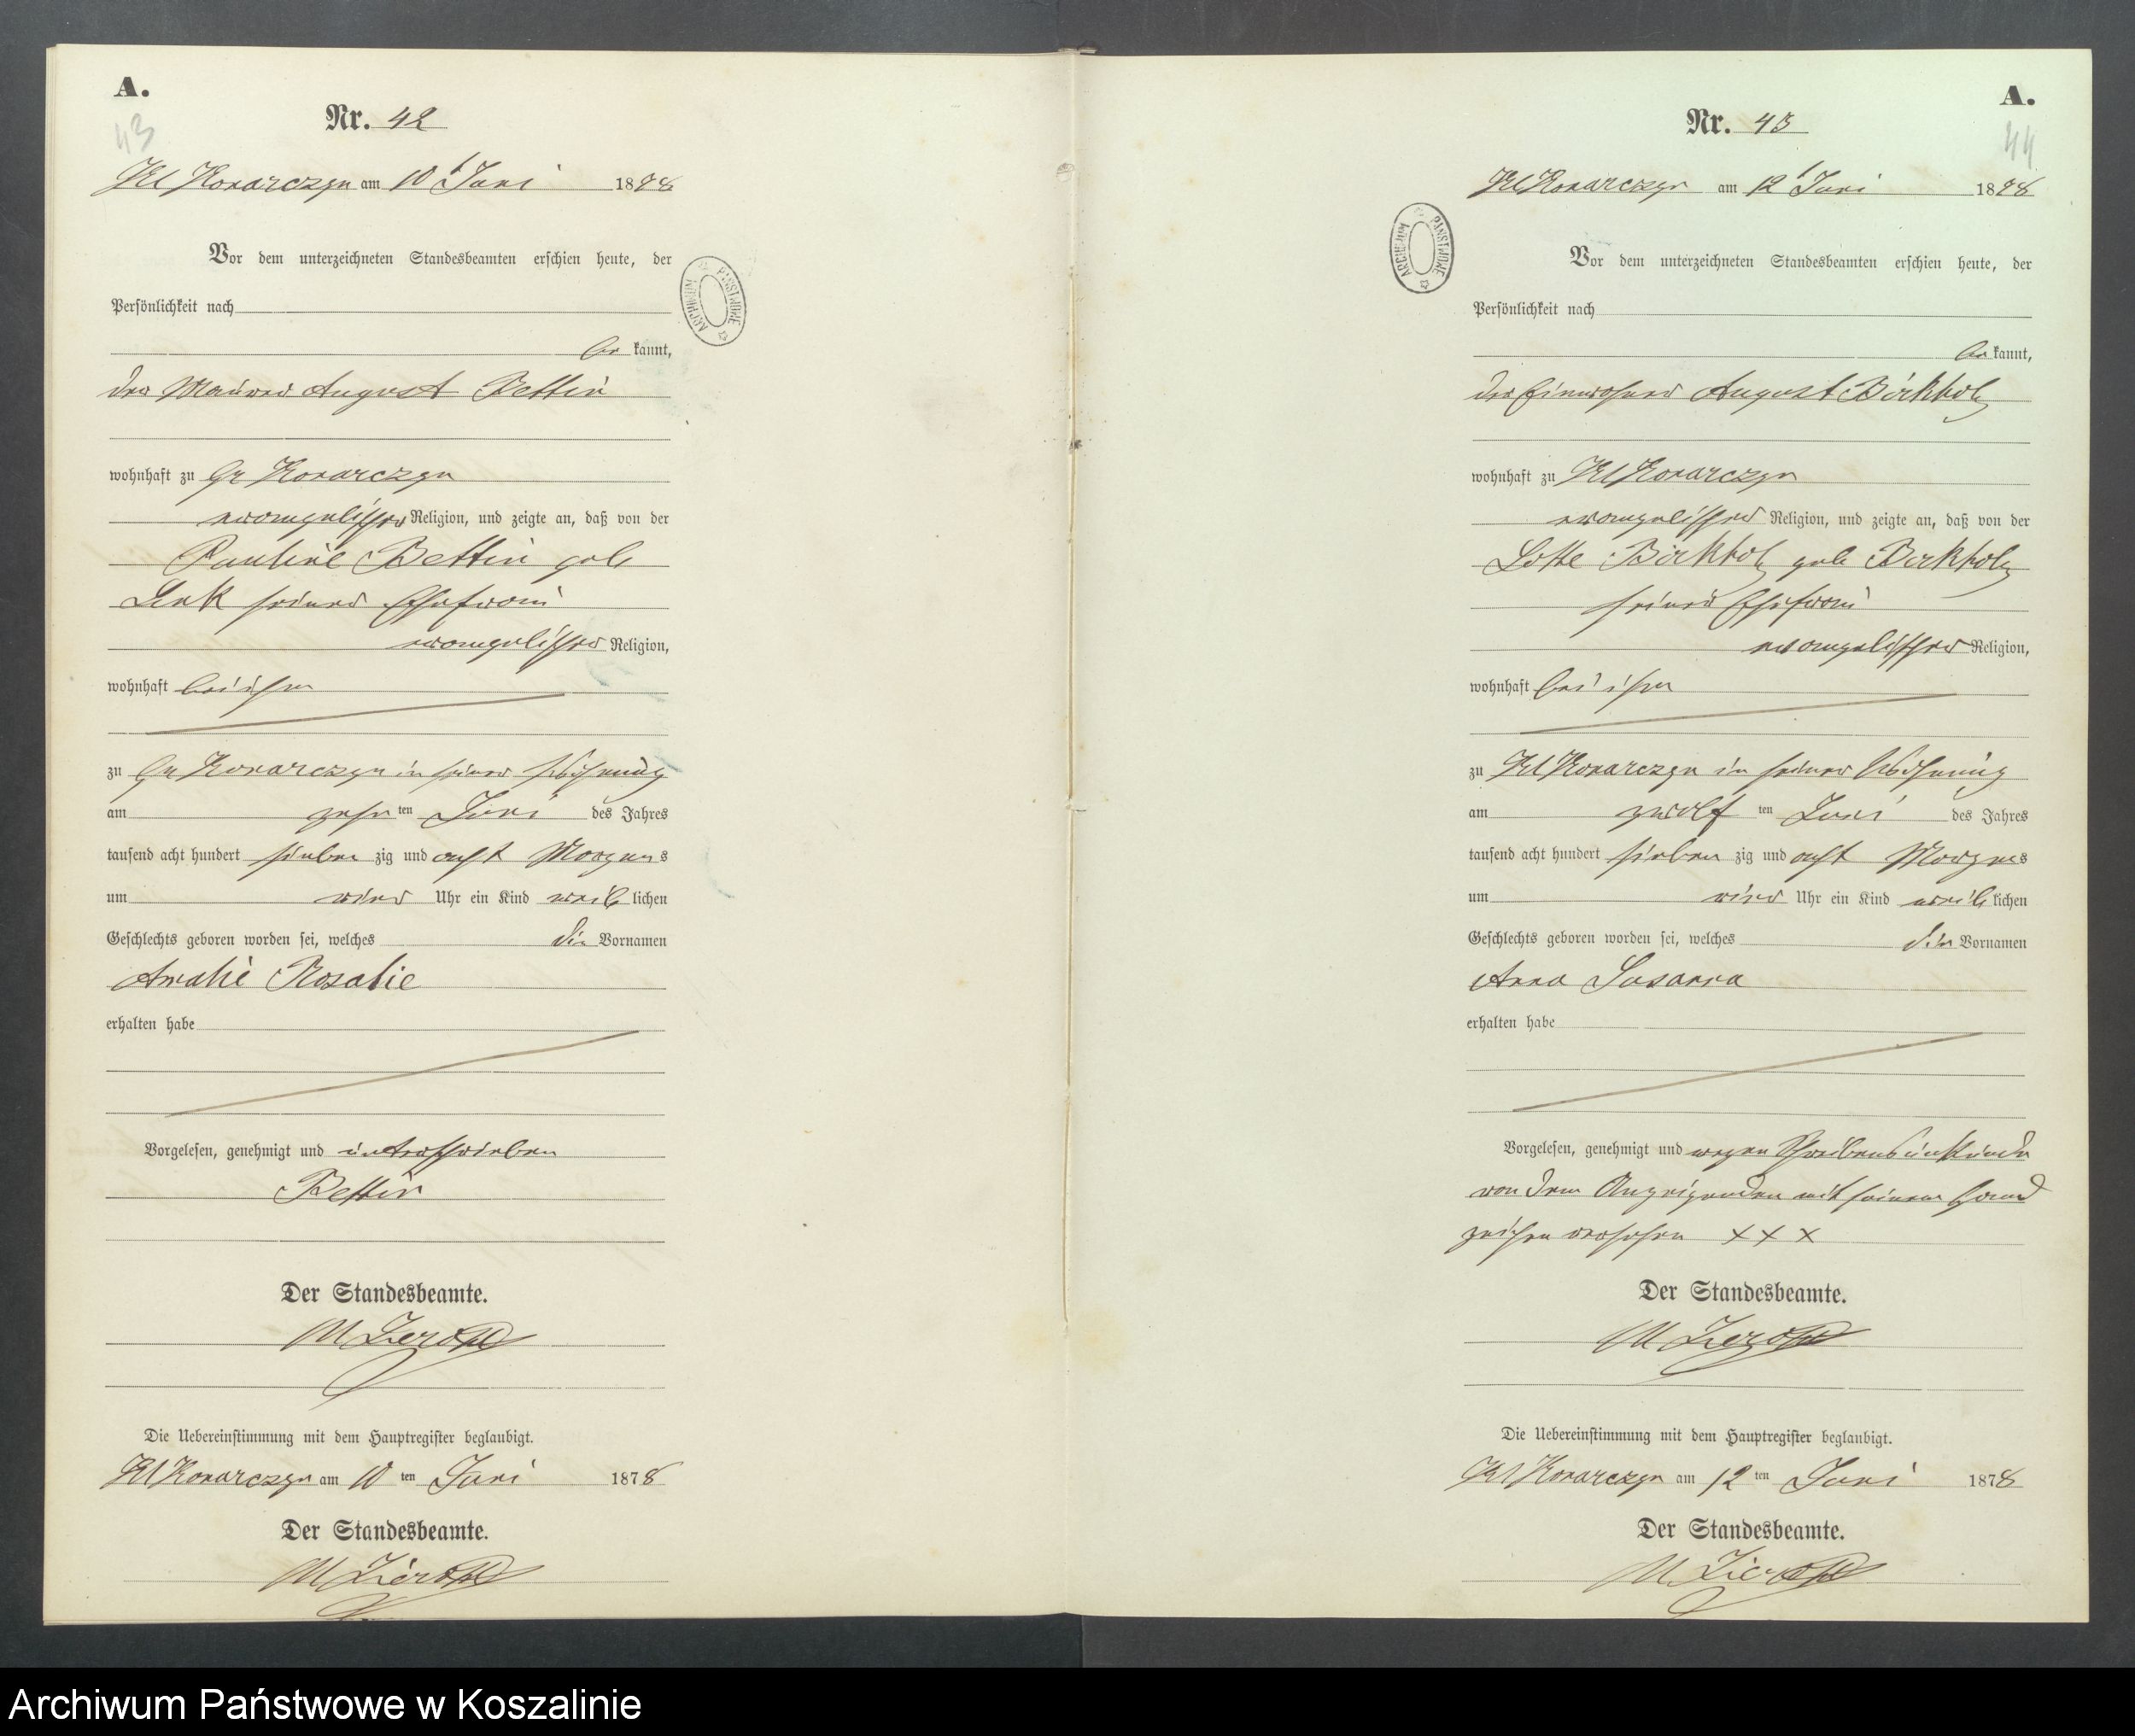 A.
43
Nr. 42
Kl Konarczyn am 10 Juni 1878
Vor dem unterzeichneten Standesbeamten erschien heute, der
Persönlichkeit nach
be kannt,
der Maurer August Bettin
wohnhaft zu Gr Konarczyn
evangelischer Religion, und zeigte an, daß von der
Pauline Bettin geb
Link seiner Ehefrau
evangelischer Religion,
wohnhaft bei ihm
zu Gr Konarczyn in seiner Wohnung
am zehn ten Juni des Jahres
tausend acht hundert sieben zig und acht Morgens
um vier Uhr ein Kind weib lichen
Geschlechts geboren worden sei, welches die Vornamen
Amalie Rosalie
erhalten habe
Vorgelesen, genehmigt und unterschrieben
Bettin
Der Standesbeamte.
Die Uebereinstimmung mit dem Hauptregister beglaubigt.
Kl Konarczyn am 10 ten Juni 1878
Der Standesbeamte.
ARCHIWUM PAŃSTWOWE
A.
44
Nr. 43
Kl Konarczyn am 12 Juni 1878
Vor dem unterzeichneten Standesbeamten erschien heute, der
Persönlichkeit nach
be kannt,
der Einwohner August Birkholz
wohnhaft zu Kl Konarczyn
evangelischer Religion, und zeigte an, daß von der
Lotte Birkholz geb Birkholz
seiner Ehefrau
evangelischer Religion,
wohnhaft bei ihm
zu Kl Konarczyn in seiner Wohnung
am zwölf ten Juni des Jahres
tausend acht hundert sieben zig und acht Morgens
um vier Uhr ein Kind weib lichen
Geschlechts geboren worden sei, welches die Vornamen
Anna Susanna
erhalten habe
Vorgelesen, genehmigt und wegen Schreibensunkunde
von dem Anzeigenden mit seinem Hand
zeichen versehen × × ×
Der Standesbeamte.
Die Uebereinstimmung mit dem Hauptregister beglaubigt.
Kl Konarczyn am 12 ten Juni 1878
Der Standesbeamte.
ARCHIWUM PAŃSTWOWE
Archiwum Państwowe w Koszalinie